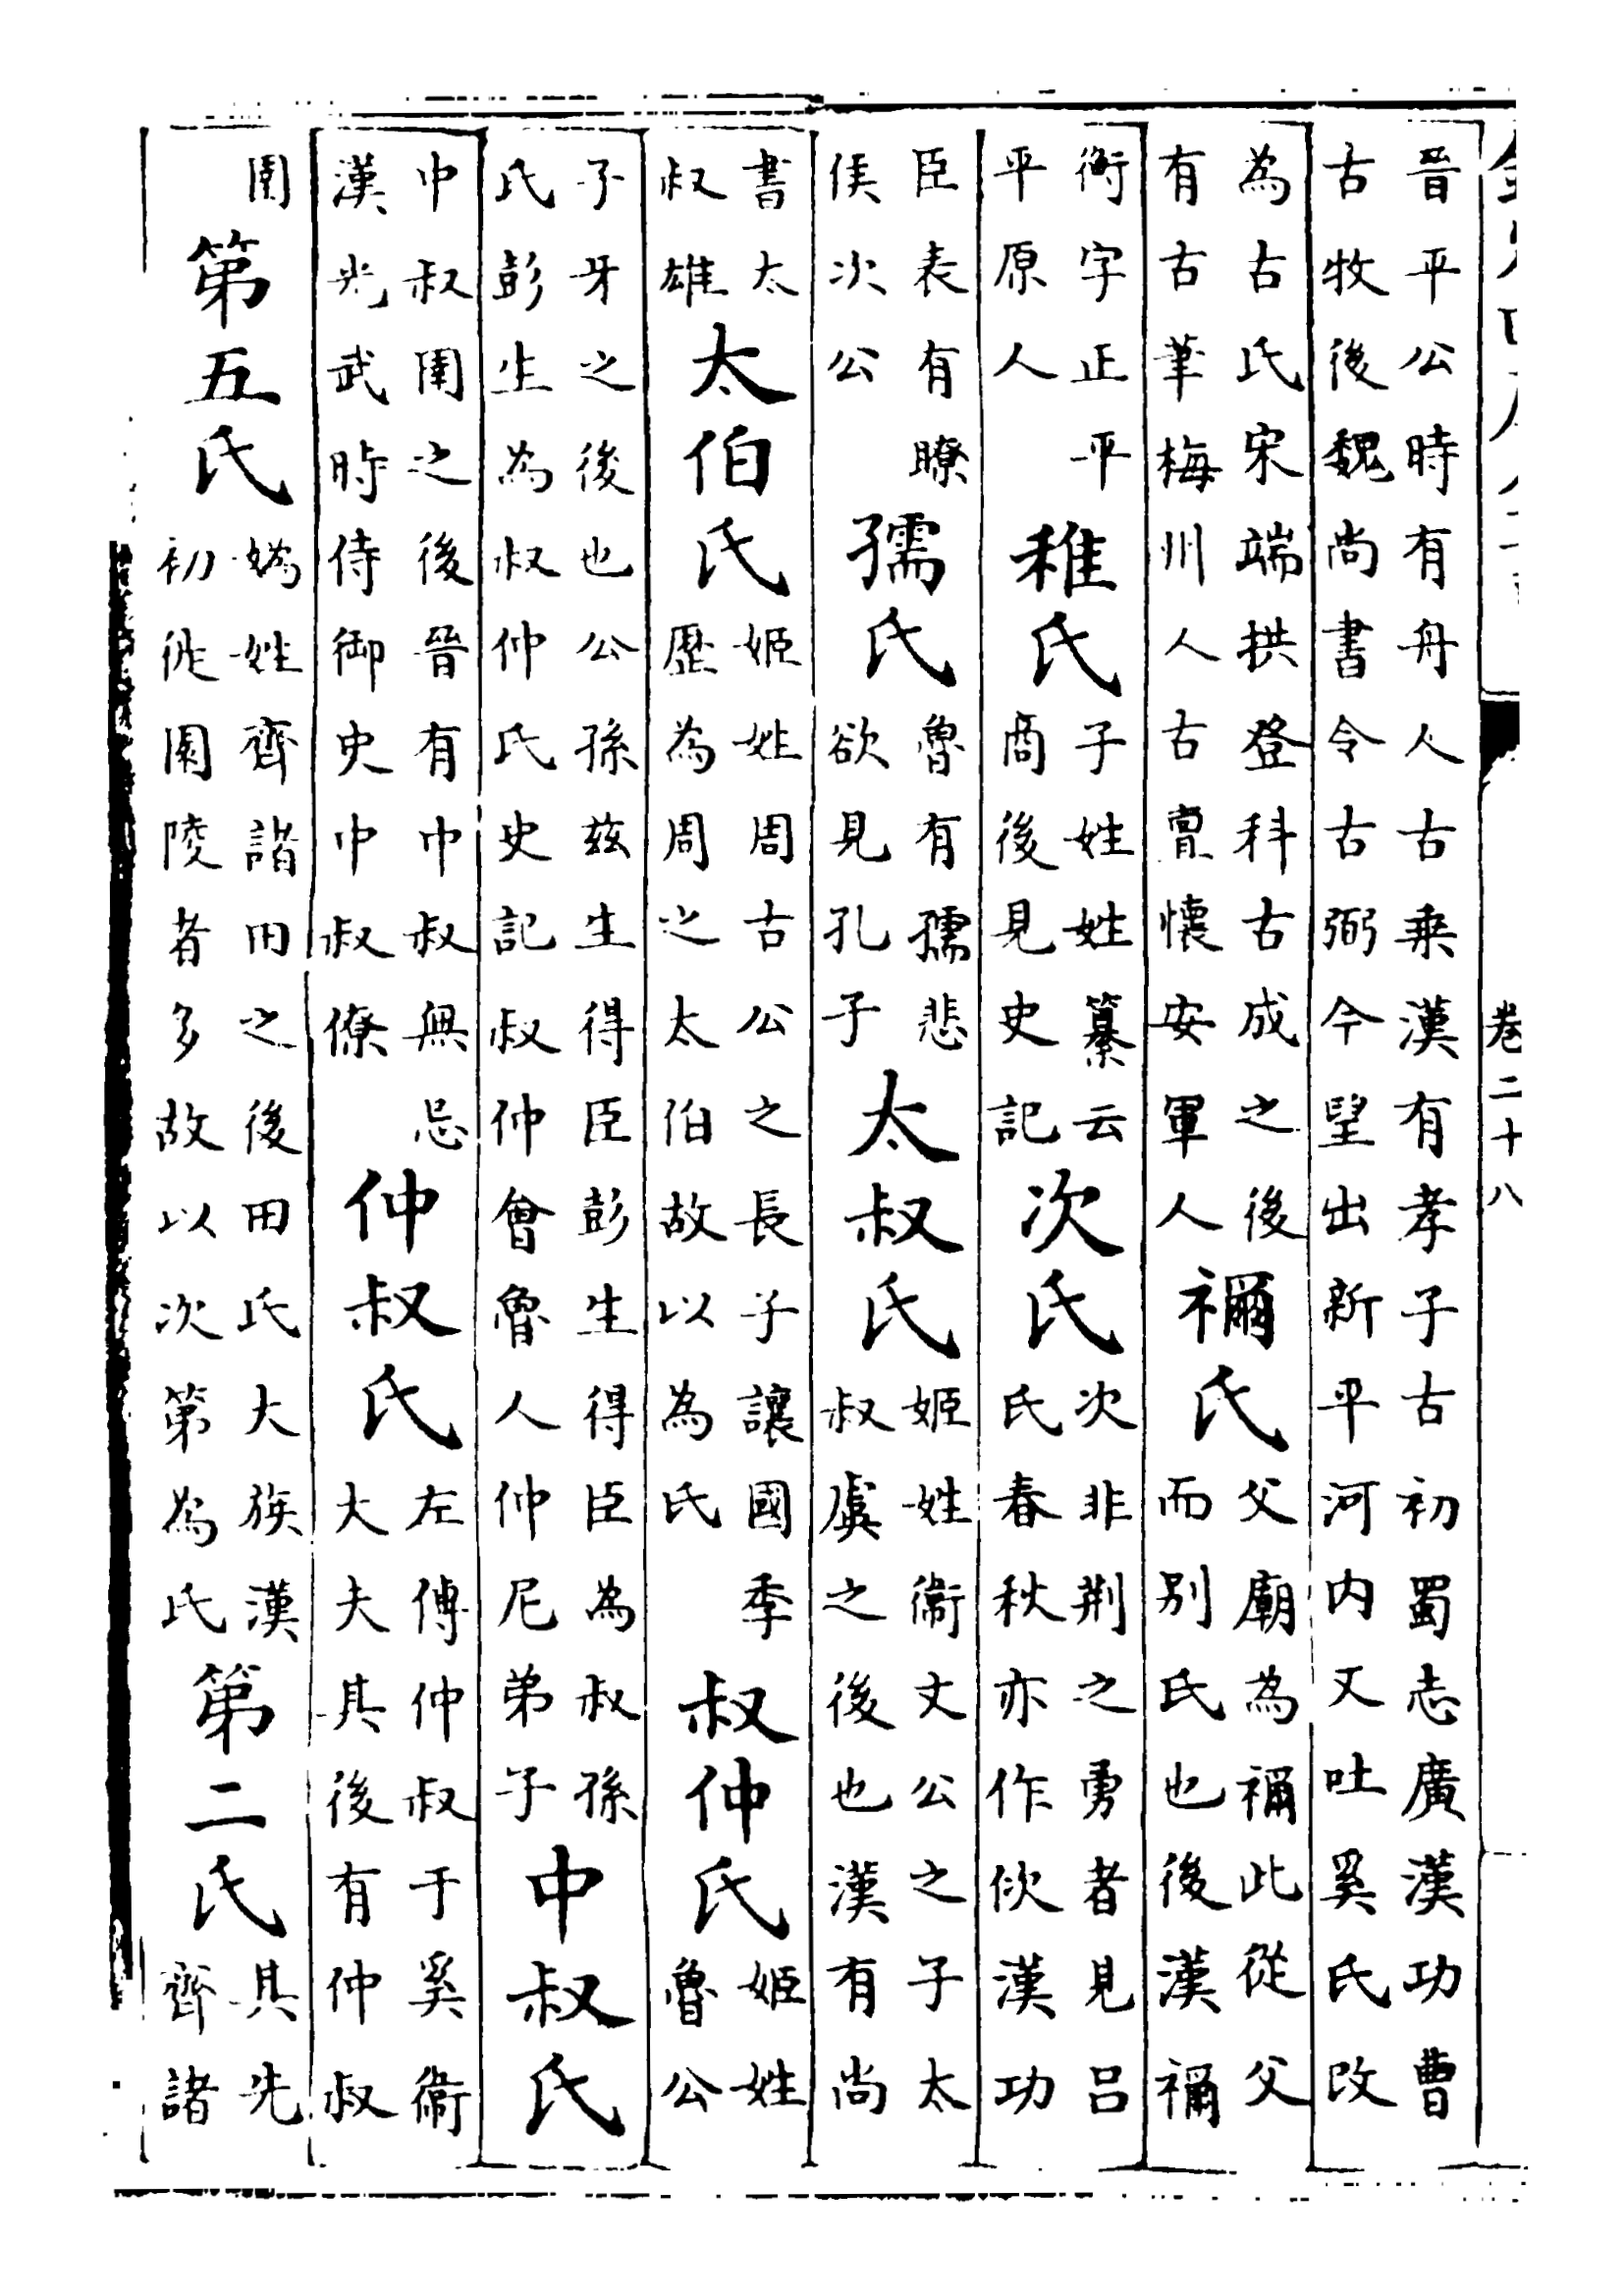 晉平公時有舟人古乗漢有孝子古初蜀志廣漢功曹
古牧後魏尚書令古弼今望出新平河内又吐奚氏改
為古氏宋端拱登科古成之後
有古革梅州人古亶懷安軍人
禰氏
父廟為禰此從父
而别氏也後漢禰
衡字正平平
平原人
稚氏
子姓姓纂云
商後見史記
次氏
次非荆之勇者見吕
氏春秋亦作佽漢功
臣表有瞭
侯次公
孺氏
魯有孺悲
欲見孔子
太叔氏
姬姓衞文公之子太
叔虞之後也漢有尚
書太
叔雄
太伯氏
姬姓周古公之長子讓國季
歴為周之太伯故以為氏
叔仲氏
姬姓
魯公
子牙之後也公孫兹生得臣彭生得臣為叔孫
氏彭生為叔仲氏史記叔仲㑹魯人仲尼弟子
中叔氏
中叔圉之後晉有中叔無忌
漢光武時侍御史中叔僚
仲叔氏
左傳仲叔于奚衞
大夫其後有仲叔
圉
第五氏
嬀姓齊諸田之後田氏大族漢
初徙園陵者多故以次第為氏
第二氏
其先
齊諸
卷二十八